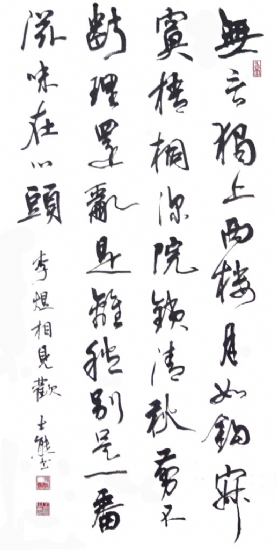 無言獨上西樓月如鉤寂
寞梧桐深院鎖清秋剪不
斷理還亂是離愁別是一番
滋味在心頭
李煜相見歡